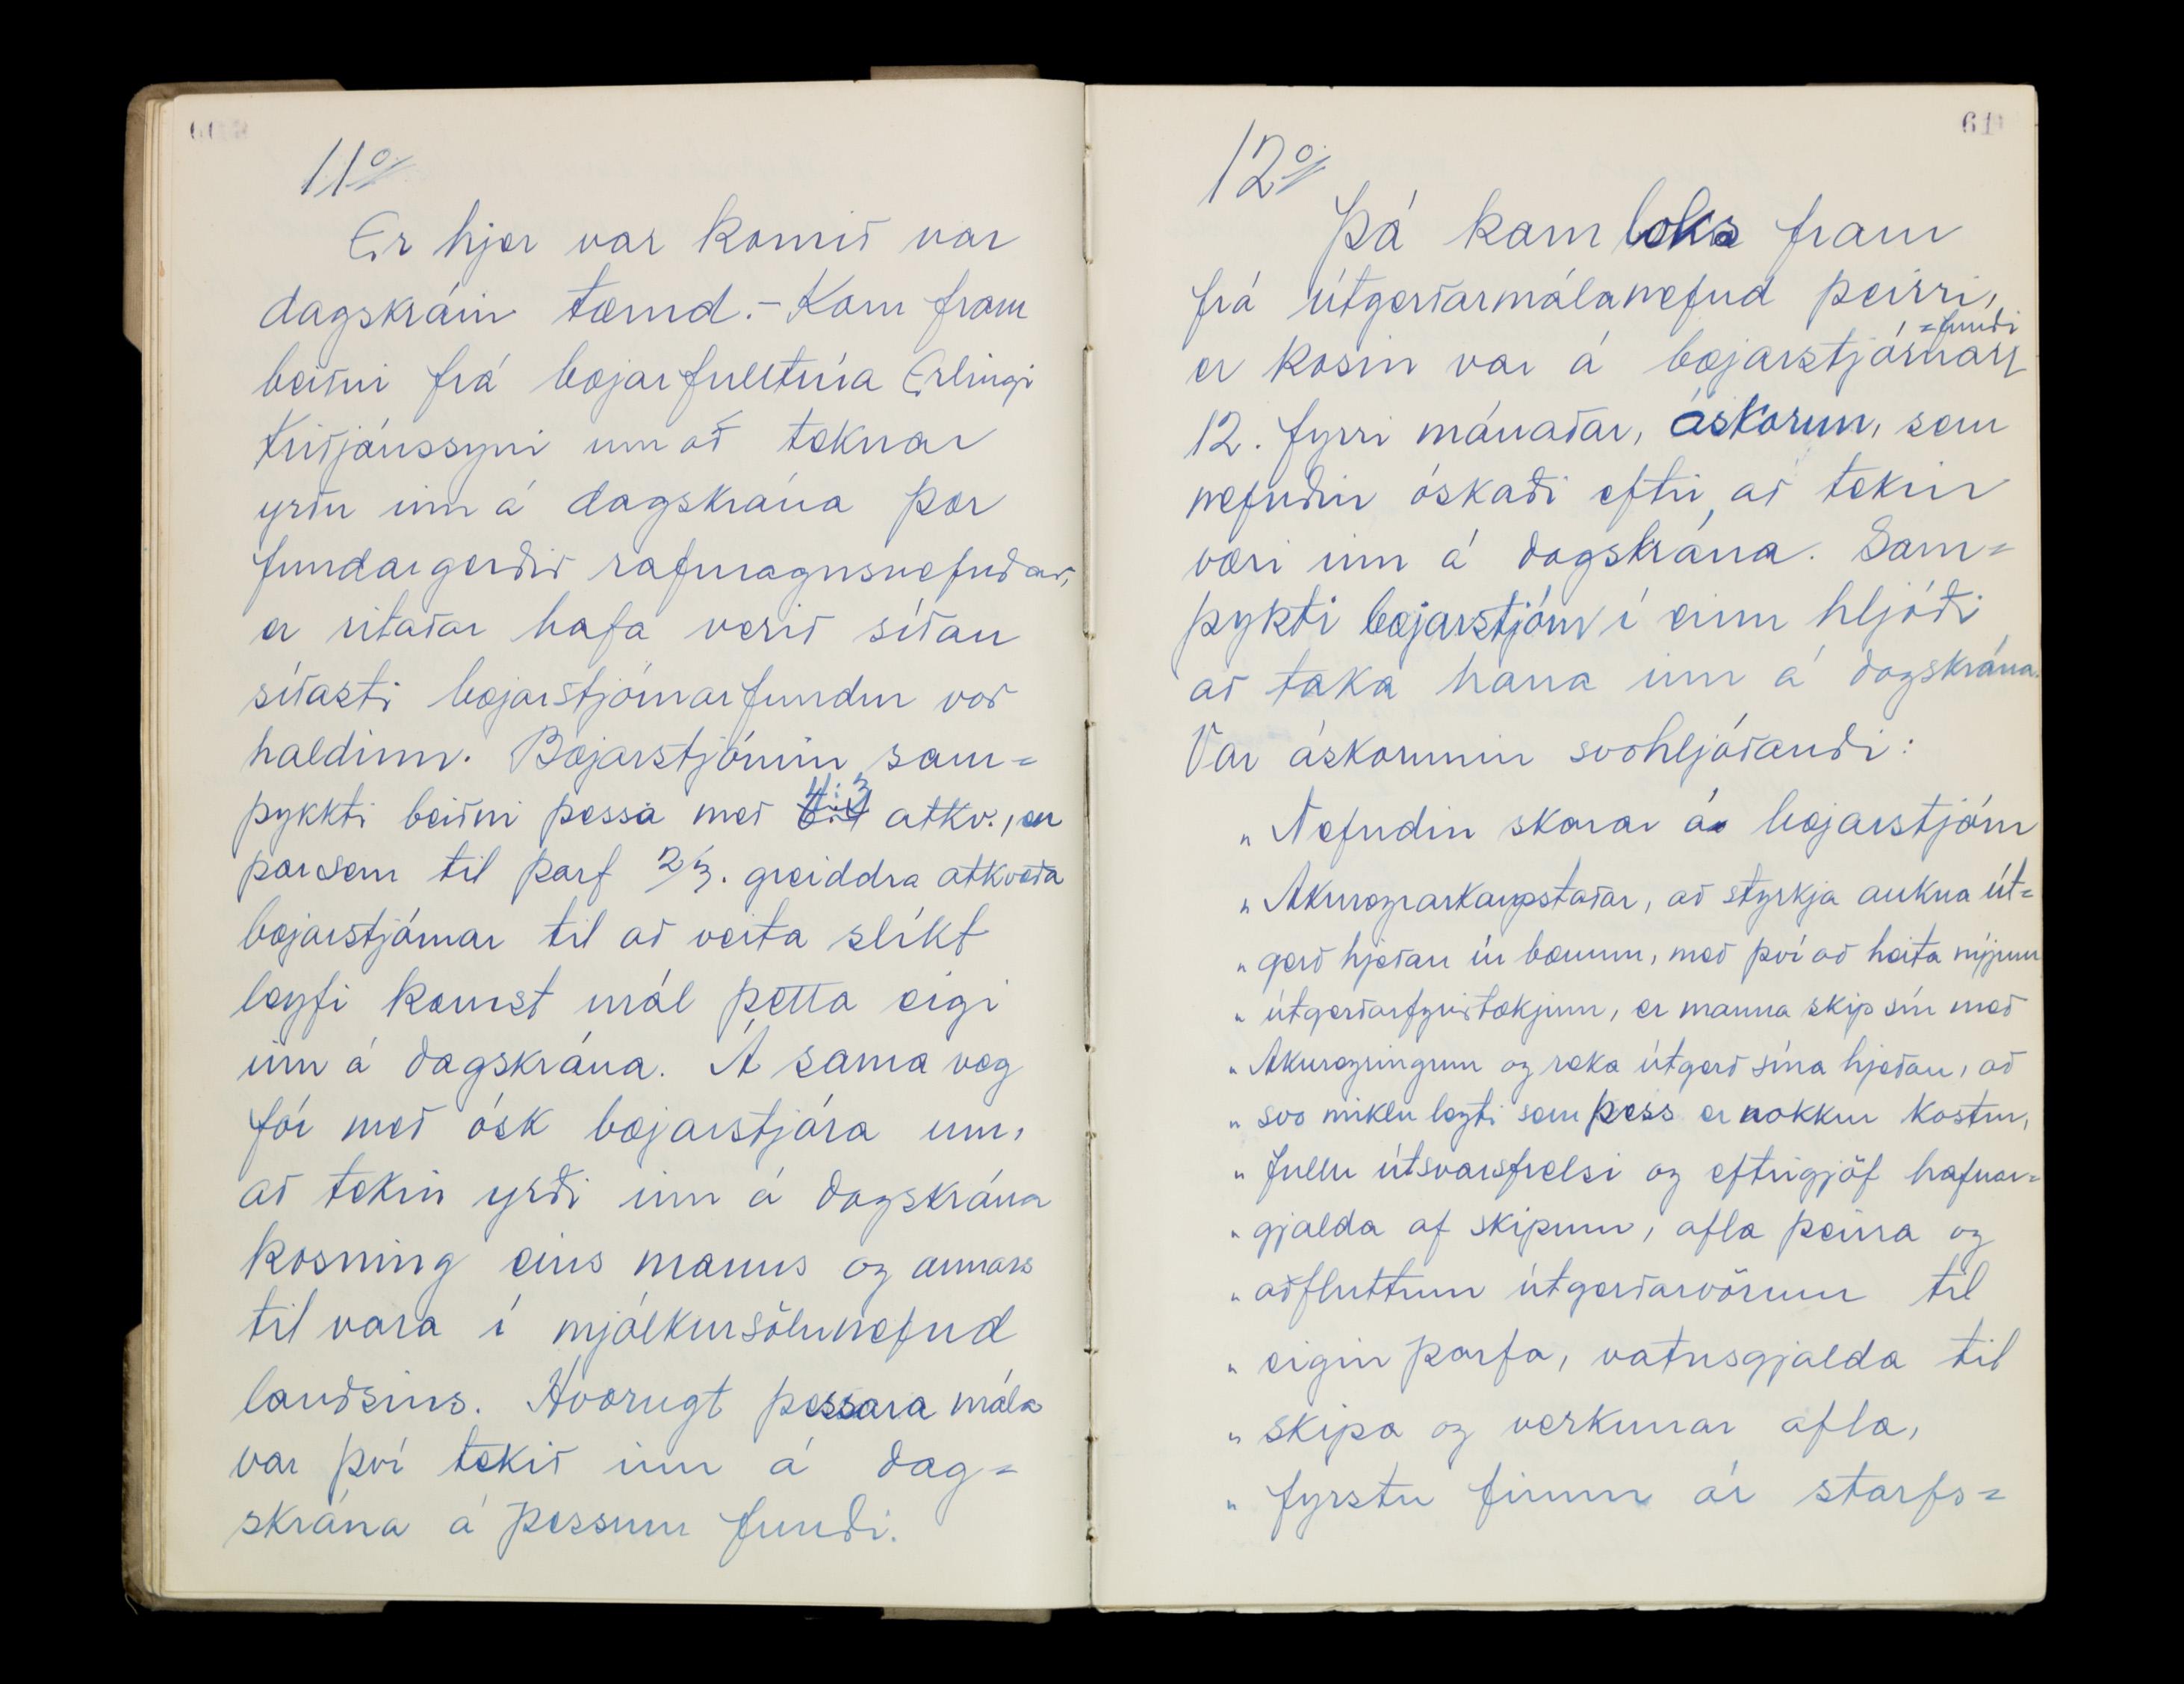 11º/
Er hjer var komið var
dagskráin tæmd. - Kom fram
beiðni frá bæjarfulltrúa Erlingi
Friðjónssyni um að teknar
yrðu inn á dagskrána þær
fundargerðir rafmagnsnefndar,
er ritaðar hafa verið síðan
síðasti bæjarstjórnarfundur var
haldinn. Bæjarstjórnin sam=
þykkti beiðni þessa með 4:3 atkv., en
þarsem til þarf 2/3. greiddra atkvæða
bæjarstjórnar til að veita slíkt
leyfi komst mál þetta eigi
inn á dagskrána. Á sama veg
fór með ósk bæjarstjóra um,
að tekin yrði inn á dagskrána
kosning eins manns og annars
til vara í mjólkursölunefnd
landsins. Hvorugt þessara mála
var því tekið inn á dag=
skrána á þessum fundi.
61
12º/
Þá kom loks fram
frá útgerðarmálanefnd þeirri,
er kosin var á bæjarstjórnar=fundi
12. fyrri mánaðar, áskorun, sem
nefndin óskaði eftir, að tekin
væri inn á dagskrána. Sam=
þykti bæjarstjórn í einu hljóði
að taka hana inn á dagskrána.
Var áskorunin svohljóðandi:
" Nefndin skorar á bæjarstjórn
" Akureyrarkaupstaðar, að styrkja aukna út=
" gerð hjeðan úr bænum, með því að heita nýjum
" útgerðarfyrirtækjum, er manna skip sín með
" Akureyringum og reka útgerð sína hjeðan, að
" svo miklu leyti sem þess er nokkur kostur,
" fullu útsvarsfrelsi og eftirgjöf hafnar=
" gjalda af skipum, afla þeirra og
" aðfluttum útgerðarvörum til
" eigin þarfa, vatnsgjalda til
" skipa og verkunar afla,
" fyrstu fimm ár starfs=